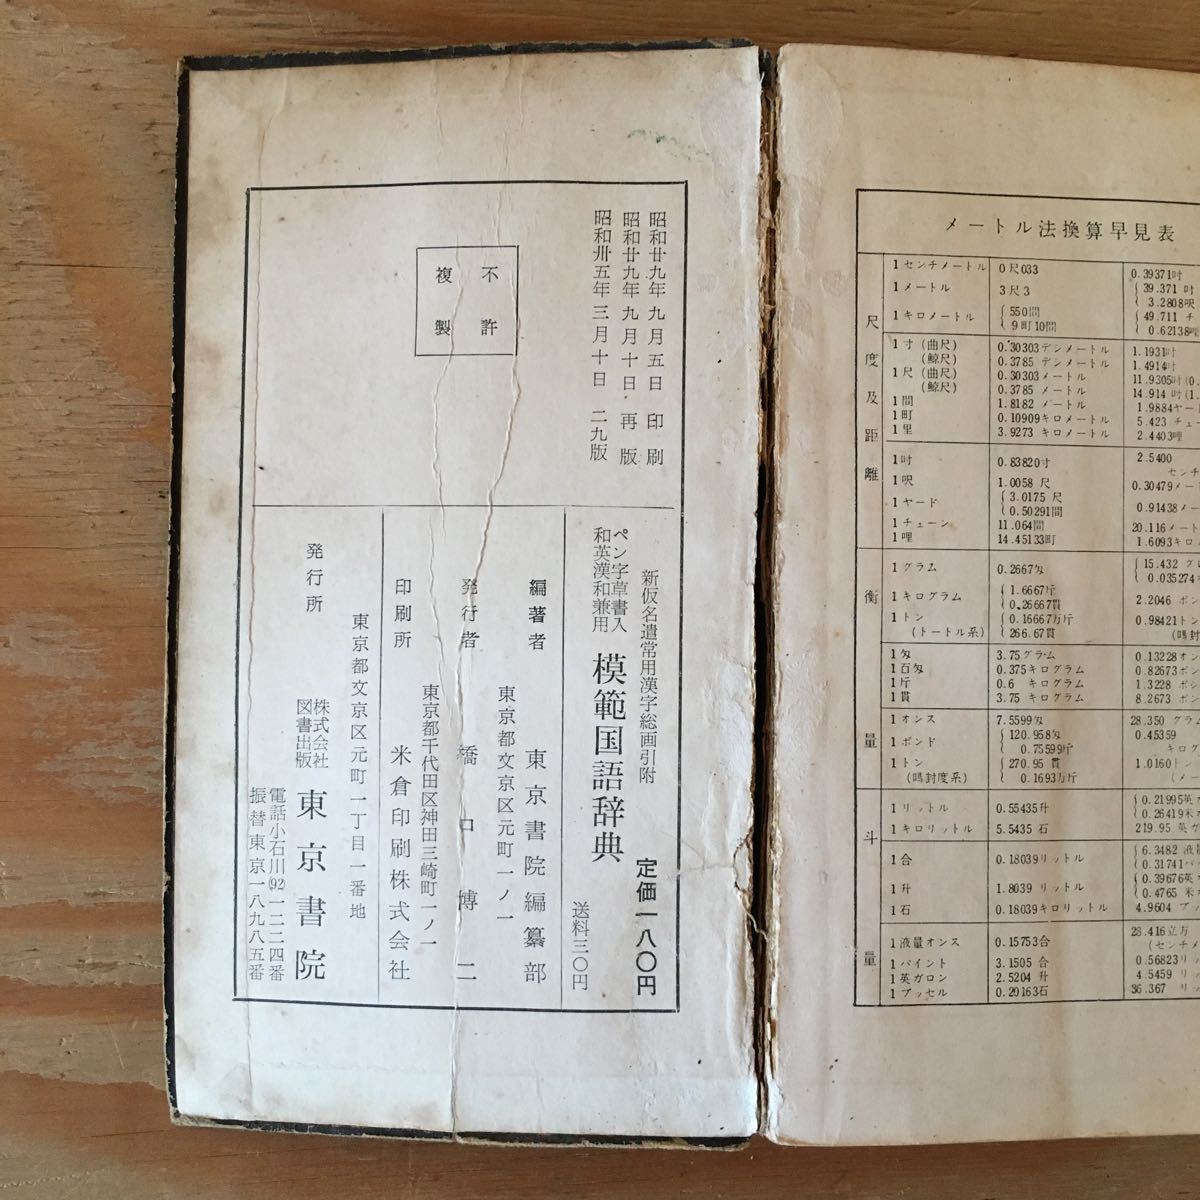 昭和廿九年九月五日 印刷
昭和廿九年九月十日 再版
昭和卅五年三月十日 二九版
不許
複製
新仮名遣常用漢字総画引附
ペン字草書入
和英漢和兼用
模範国語辞典
定価一八〇円
送料三〇円
編著者 東京書院編纂部
東京都文京区元町一ノ一
発行者 橋口博二
東京都千代田区神田三崎町一ノ一
印刷所 米倉印刷株式会社
東京都文京区元町一丁目一番地
発行所 株式会社
図書出版
東京書院
電話小石川(92)一二二四番
振替東京一八九八五番
メートル法換算早見表
尺度及距離
1センチメートル 0尺033 0.39371吋
1メートル 3尺3 39.371 吋
3.2808呎
1キロメートル 550間 49.711 チ
9町10間 0.62138哩
1寸(曲尺) 0.30303デシメートル 1.1931吋
(鯨尺) 0.3785 デシメートル 1.4914吋
1尺(曲尺) 0.30303メートル 11.9305吋(0.
(鯨尺) 0.3785 メートル 14.914 吋(1.
1間 1.8182 メートル 1.9884ヤー
1町 0.10909キロメートル 5.423 チェー
1里 3.9273 キロメートル 2.4403哩
1吋 0.83820寸 2.5400
センチ
1呎 1.0058 尺 0.30479メー
1ヤード 3.0175 尺 0.91438メー
0.50291間
1チェーン 11.064間 20.116メート
1哩 14.45133町 1.6093キロ
衡量
1グラム 0.2667匁 15.432 グ
0.035274
1キログラム 1.6667斤 2.2046 ポン
0.26667貫
1トン 0.16667万斤 0.98421トン
(トートル系) 266.67貫
1匁 3.75グラム 0.13228オン
1百匁 0.375キログラム 0.82673ポン
1斤 0.6 キログラム 1.3228 ポン
1貫 3.75 キログラム 8.2673 ポン
1オンス 7.5599匁 28.350 グラム
1ポンド 120.958匁 0.45359
0.75599斤 キログ
1トン 270.95 貫 1.0160トン
(噸封度系) 0.1693万斤 (メー
斗量
1リットル 0.55435升 0.21995英
0.26419米
1キロリットル 5.5435 石 219.95 英ガ
1合 0.18039リットル 6.3482 液量
0.31741パイ
1升 1.8039 リットル 0.39676英
0.4765 米
1石 0.18039キロリットル 4.9604 ブッ
1液量オンス 0.15753合 28.416立方
(センチメ
1パイント 3.1505 合 0.56823リッ
1英ガロン 2.5204 升 4.5459 リッ
1ブッセル 0.20163石 36.367 リッ